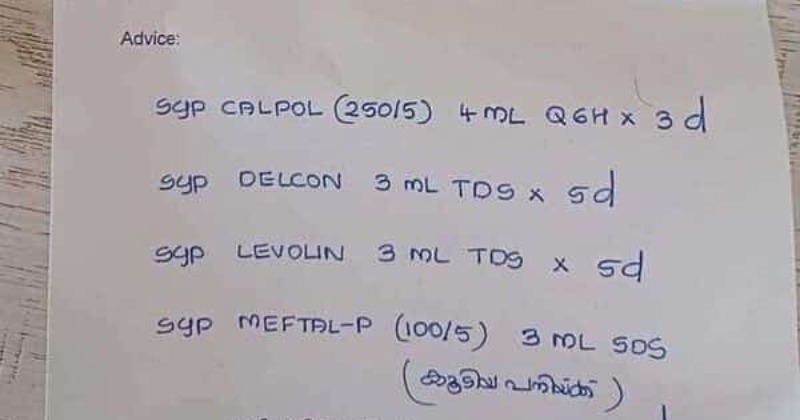 Advice:
Syp CALPOL (250/5) 4 ML Q6H x 3 d
Syp DELCON 3 ML TDS x 5d
Syp LEVOLIN 3 ML TDS x 5d
Syp MEFTAL-P (100/5) 3 ML SOS
(കൂടിയ പനിയ്ക്ക്)